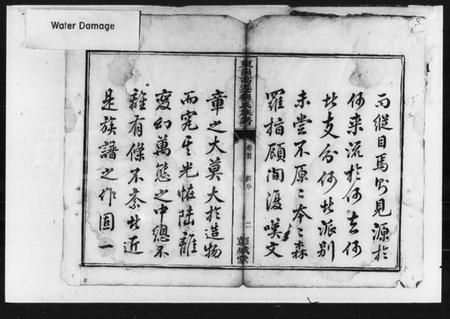 Water Damage
而縱目焉則見源於
何來流於何去何
此支分何此派別
未嘗不原〻本〻森
羅指顧間漫嘆文
族譜
卷首
二
彭城堂
章之大莫大於造物
而究其光怪陸離
變幻萬態之中總不
離有條不紊此近
是族譜之作固一